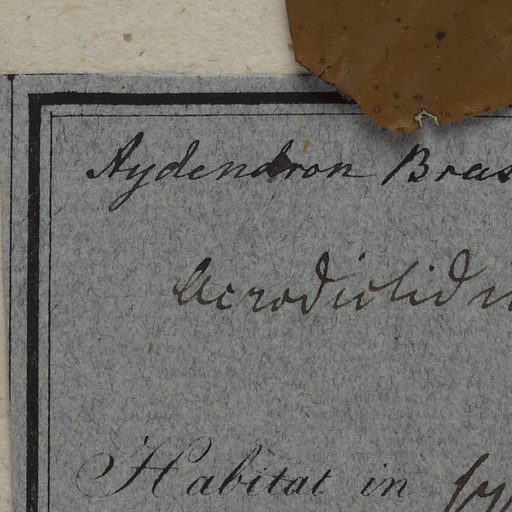 Aydendron Bras
Acrodiclidi
Habitat in sy